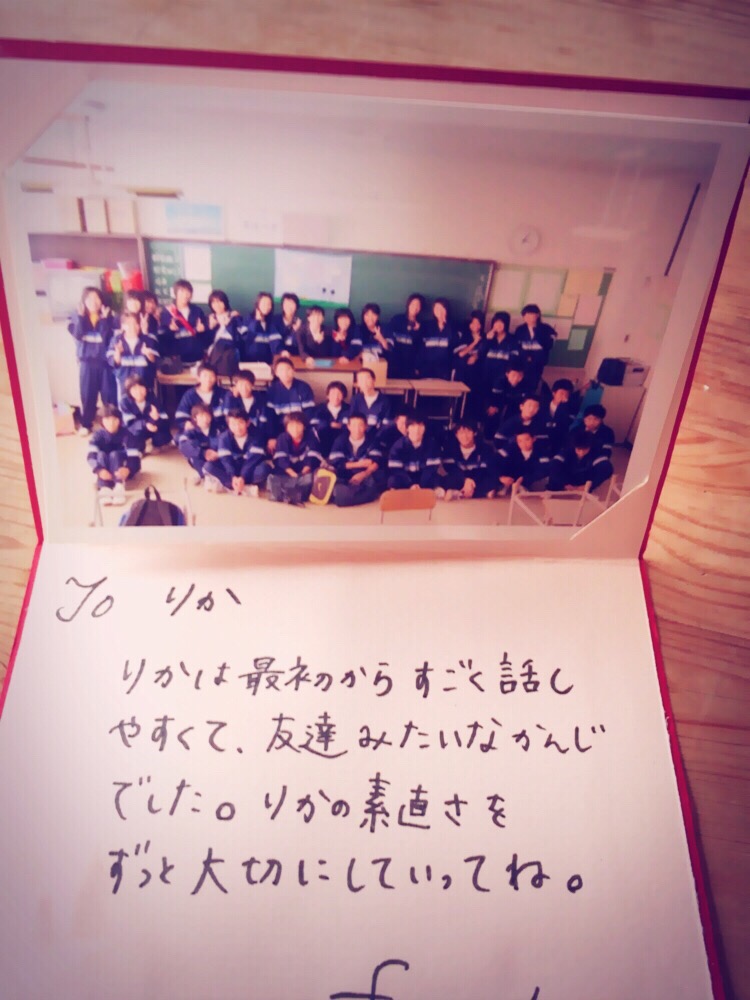 To りか
りかは最初からすごく話し
やすくて、友達みたいなかんじ
でした。りかの素直さを
ずっと大切にしていってね。